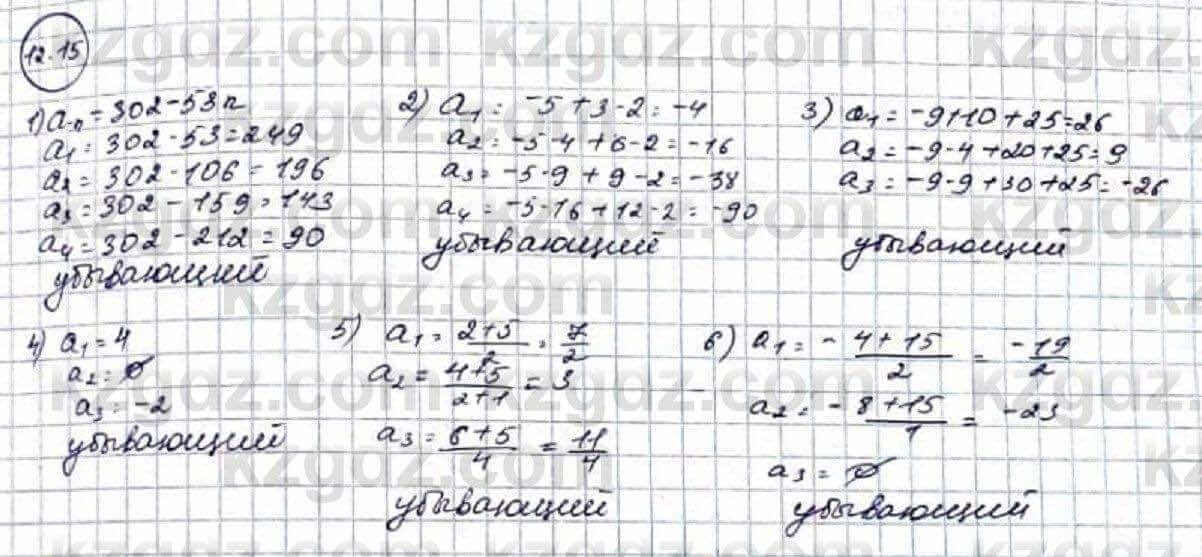 12.15
1) aₙ = 302 - 53n
a₁ = 302 - 53 = 249
a₂ = 302 - 106 = 196
a₃ = 302 - 159 = 143
a₄ = 302 - 212 = 90
убывающий
2) a₁ = -5 + 3 - 2 = -4
a₂ = -5·4 + 6 - 2 = -16
a₃ = -5·9 + 9 - 2 = -38
a₄ = -5·16 + 12 - 2 = -90
убывающий
3) a₁ = -9 + 10 + 25 = 26
a₂ = -9·4 + 20 + 25 = 9
a₃ = -9·9 + 30 + 25 = -26
убывающий
4) a₁ = 4
a₂ = ∅
a₃ = -2
убывающий
5) a₁ = (2+5)/2 = 7/2
a₂ = (4+5)/(2+1) = 3
a₃ = (6+5)/4 = 11/4
убывающий
6) a₁ = - (4+15)/2 = -19/2
a₂ = - (8+15)/1 = -23
a₃ = ∅
убывающий
kzgdz.com